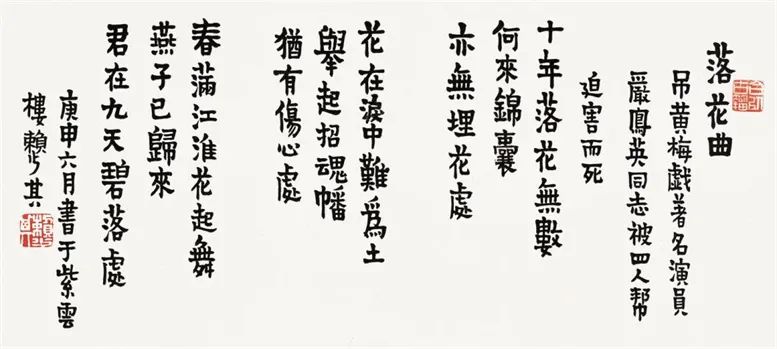 落花曲
吊黄梅戯著名演員
嚴鳳英同志被四人幇
迫害而死
十年落花無數
何來錦囊
亦無埋花處
花在淚中難爲土
舉起招魂幡
猶有傷心處
春滿江淮花起舞
燕子已歸來
君在九天碧落處
庚申六月書于紫雲
樓賴少其